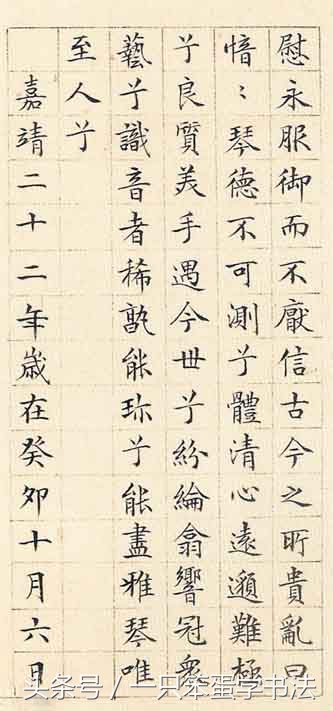 慰永服御而不厭信古今之所貴亂曰
愔〻琴德不可測兮體清心遠邈難極
兮良質美手遇今世兮紛綸翕響冠衆
藝兮識音者稀孰能珎兮能盡雅琴唯
至人兮
嘉靖二十二年歲在癸卯十月六日
头条号/一只笨蛋学书法